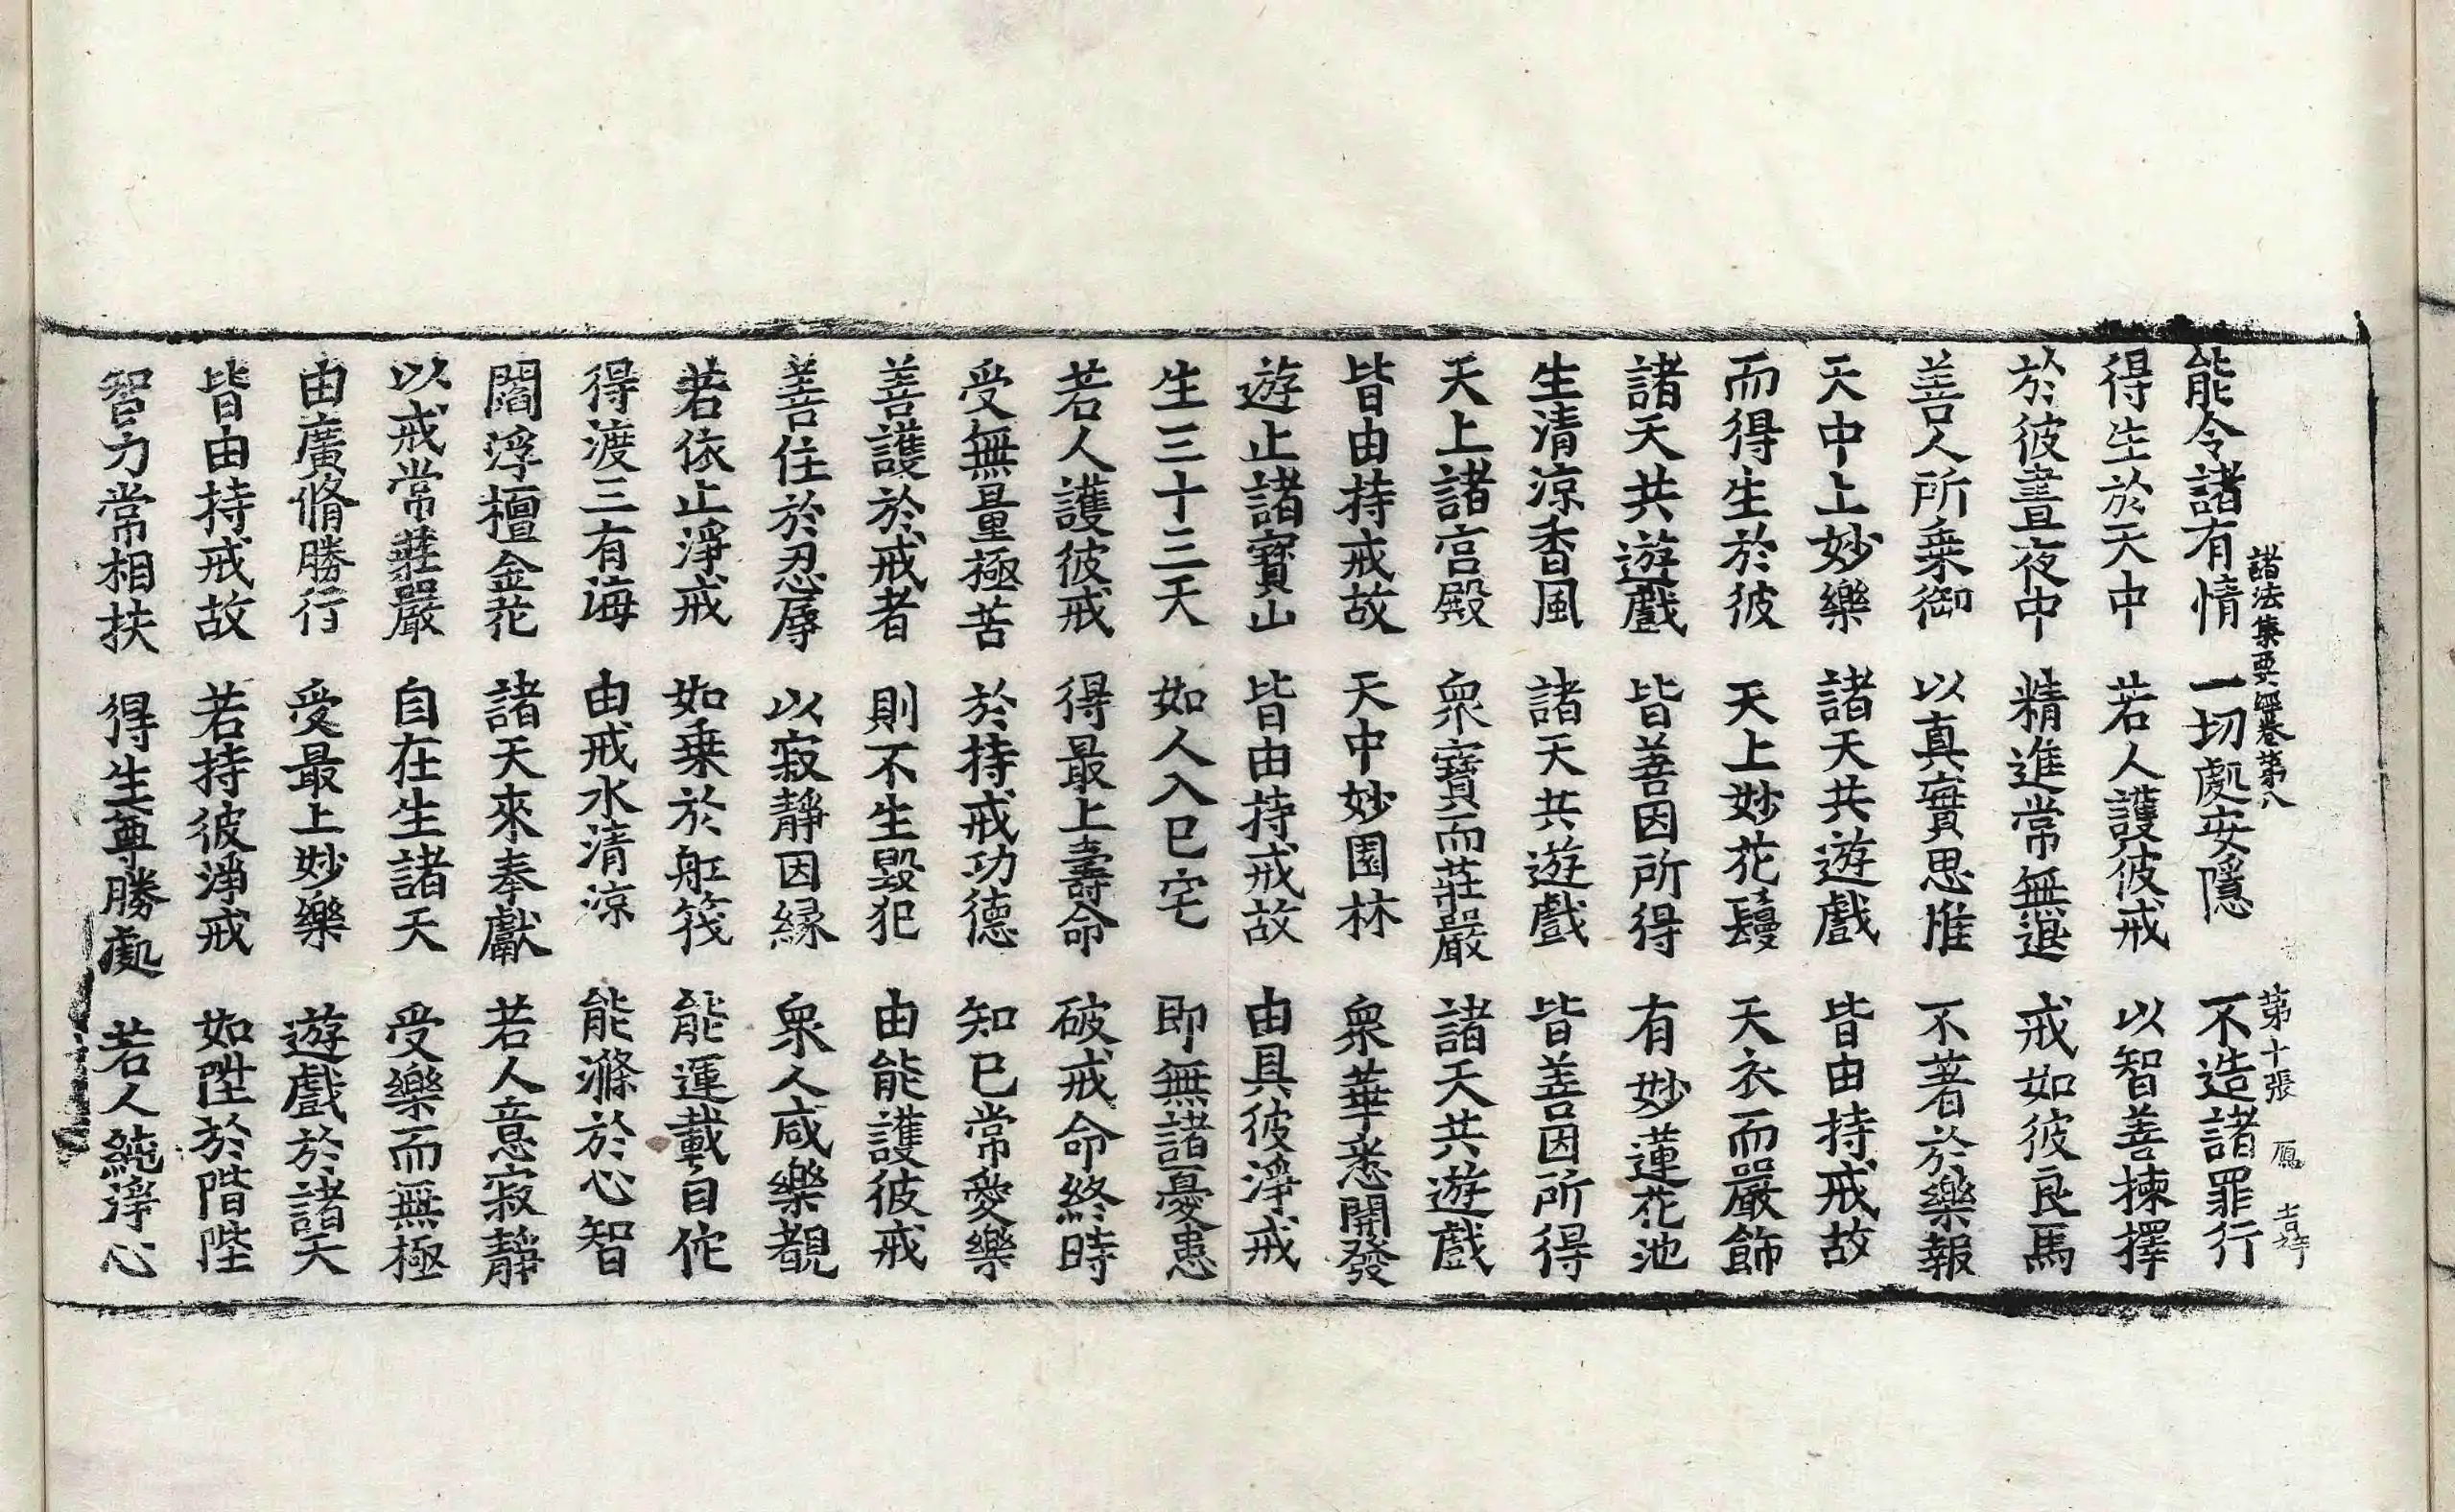 諸法集要經卷第八　第十張　鳳
能令諸有情　一切處安隱　不造諸罪行
得生於天中　若人護彼戒　以智善揀擇
於彼晝夜中　精進常無退　戒如彼良馬
善人所乘御　以真實思惟　不著於樂報
天中上妙樂　諸天共遊戲　皆由持戒故
而得生於彼　天上妙花鬘　天衣而嚴飾
諸天共遊戲　皆善因所得　有妙蓮花池
生清涼香風　諸天共遊戲　皆善因所得
天上諸宮殿　衆寶而莊嚴　諸天共遊戲
皆由持戒故　天中妙園林　衆華悉開發
遊止諸寶山　皆由持戒故　由具彼淨戒
生三十三天　如人入己宅　即無諸憂患
若人護彼戒　得最上壽命　破戒命終時
受無量極苦　於持戒功德　知已常愛樂
善護於戒者　則不生毀犯　由能護彼戒
善住於忍辱　以寂靜因縁　衆人咸樂覩
若依止淨戒　如乗於舡筏　能運載自他
得渡三有海　由戒水清涼　能滌於心智
閻浮檀金花　諸天來奉獻　若人意寂靜
以戒常莊嚴　自在生諸天　受樂而無極
由廣脩勝行　受最上妙樂　遊戲於諸天
皆由持戒故　若持彼淨戒　如陞於階陛
智力常相扶　得生尊勝處　若人純淨心